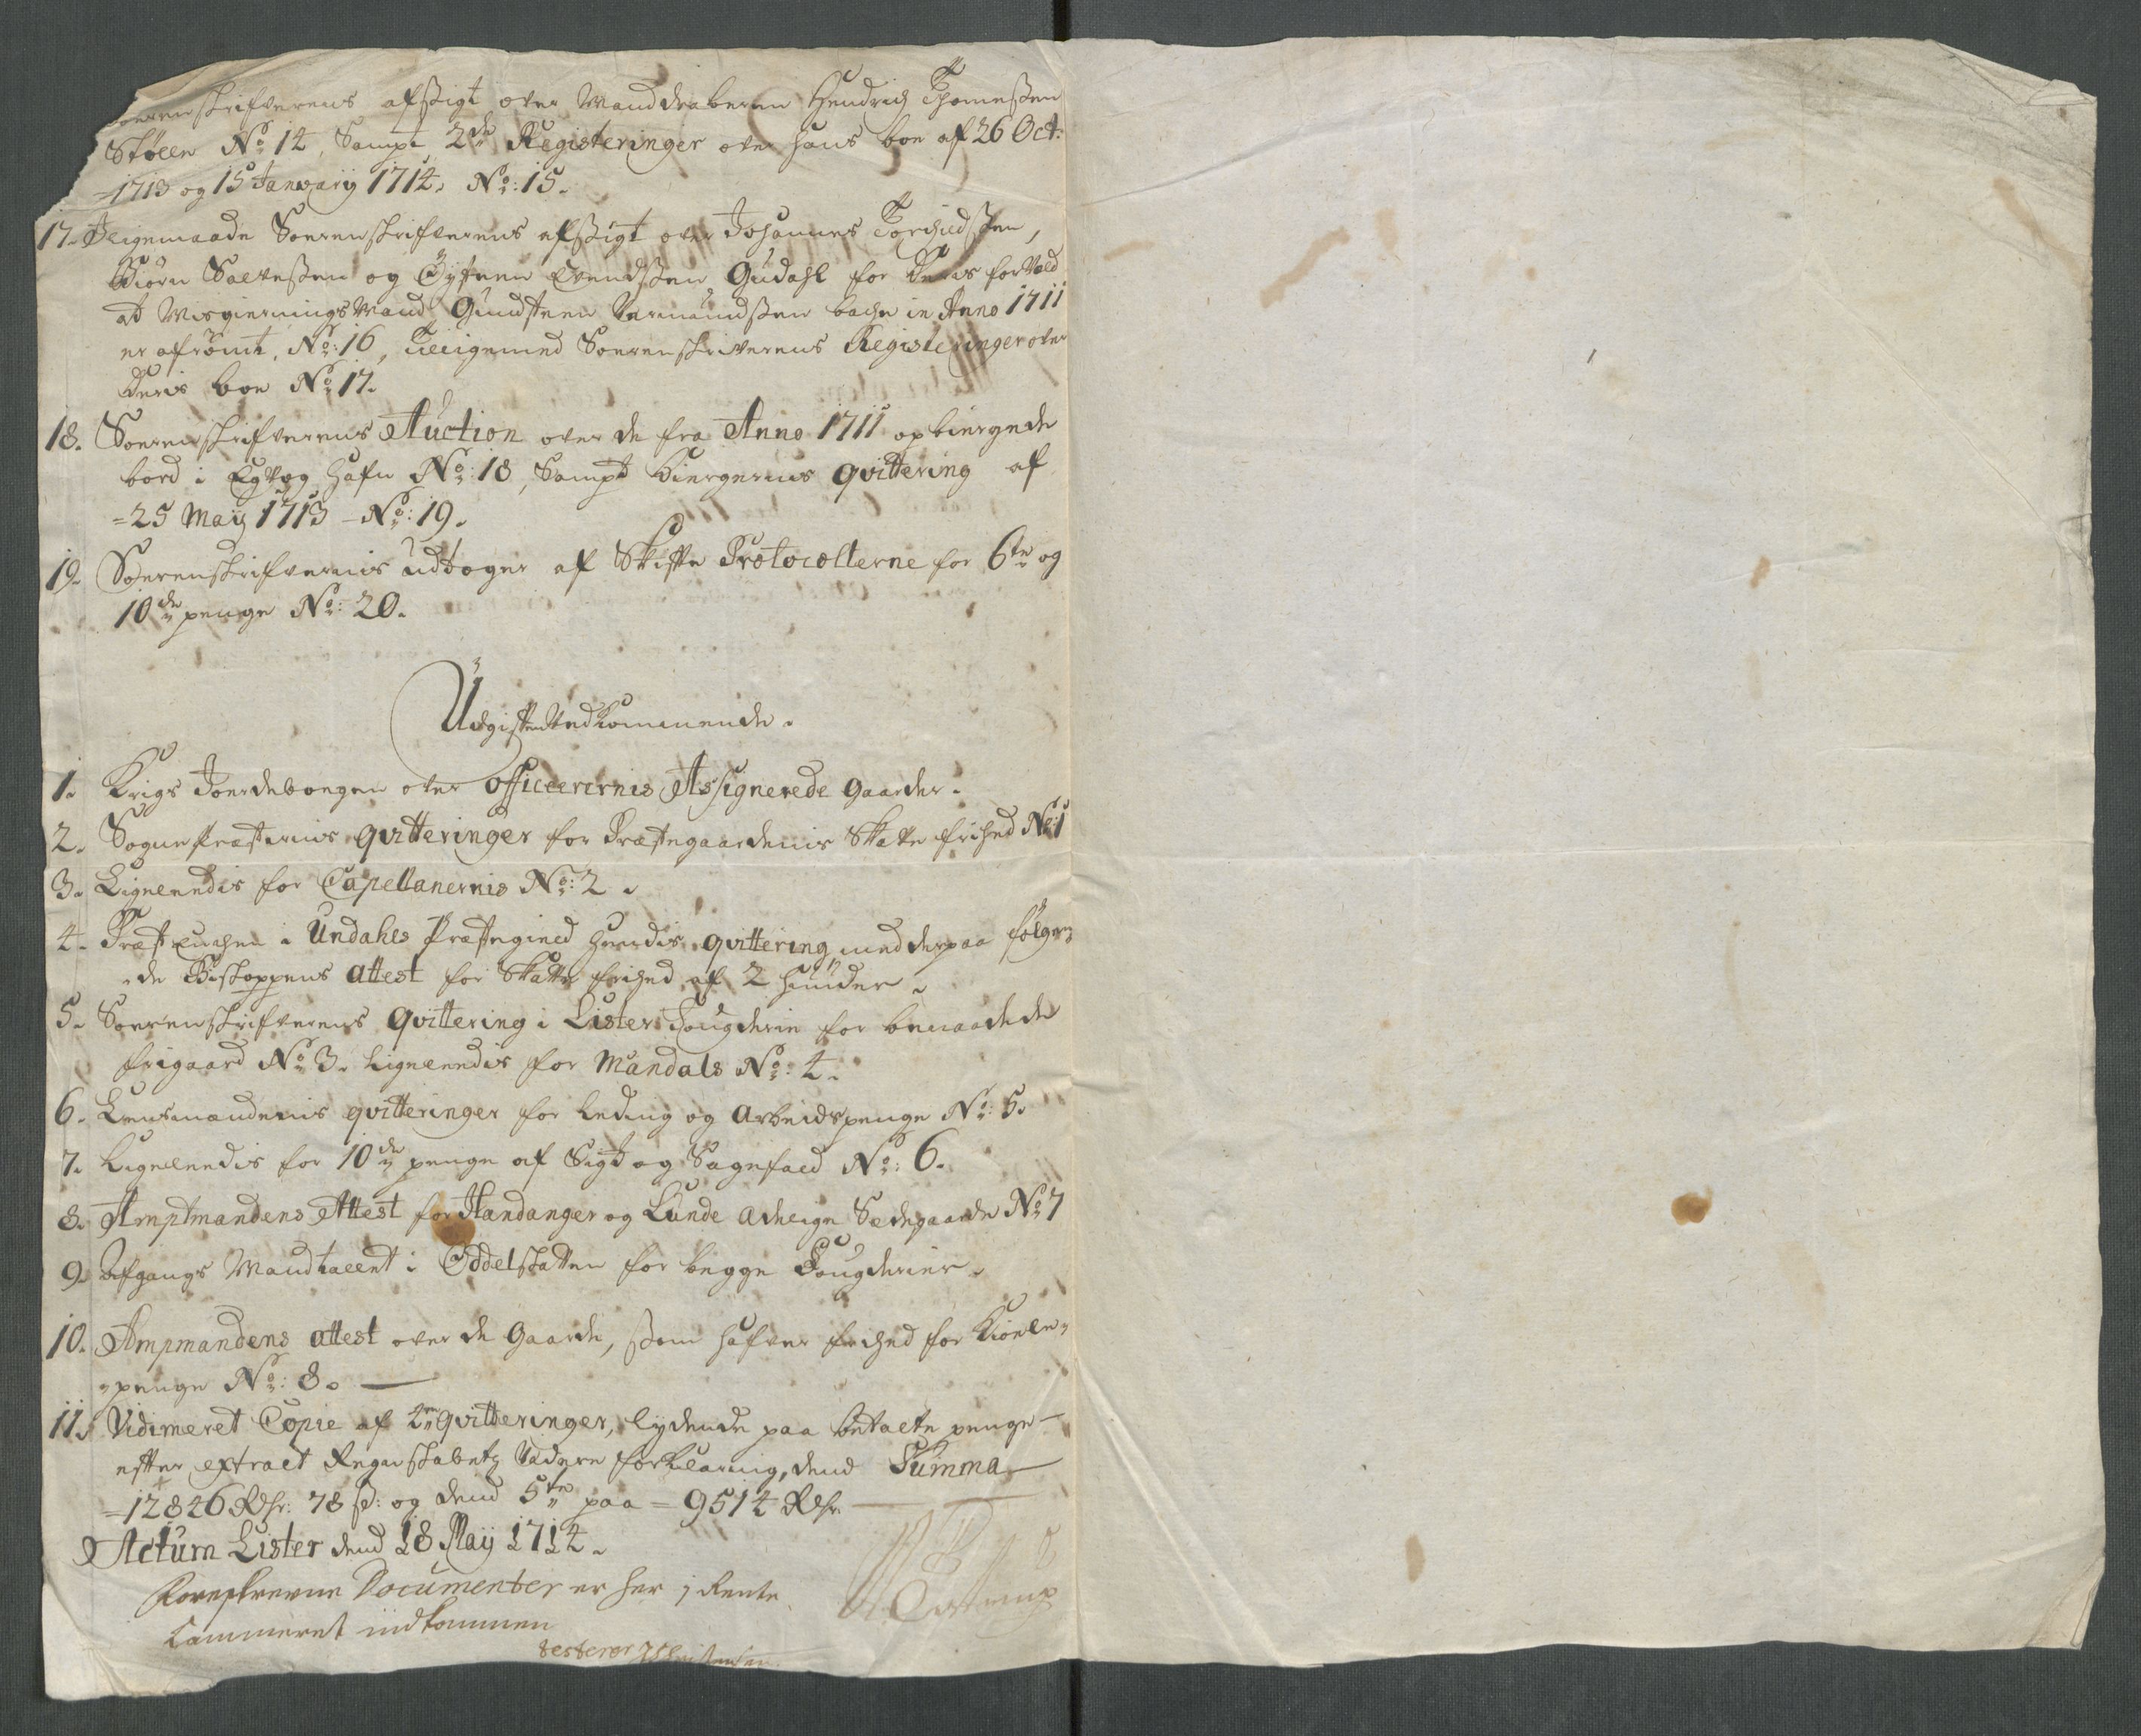 Sorenskrifverens afsigt over Manddraberen Hendrich Thomessen
Støllen No: 14, Sampt 2de Registeringer over hans boe af 26 Oct:
=1713 og 15 Januarij 1714, No: 15.
17. Iligemaade Sorenskrifverens afsigt over Johannes Torkildssen,
Biørn Salvessen og Øysteen Evendssen Gudahl for deris forhold
at Misgierningsmand Gundsteen bache in Anno 1711
er afrømt, No: 16, Tilligemed Sorenskriverens Registeringer over
deris boe No: 17.
18. Sorenskrifverens Auction over de fra Anno 1711 opbiergede
bord i Egvog hafn No: 18, Sampt Biergernis qvittering af
=25 Maij 1713 - No: 19.
19. Sorenskrifvernis udtoger af Skifte Protocollerne for 6te og
10de penge No: 20.
Udgiften Vedkommende.
1. Krigs Jordebogen over officerernis Assignerede Gaarder.
2. Sognepræsternis qvitteringer for Præstegaardenis Skatte frihed No: 1
3. Ligeledis for Capellanernis No: 2.
4. Præst Enchen i Undahls Præstegield hendis qvittering med derpaa følgen=
=de Biskoppens attest for Skatte frihed af 2 hunder.
5. Sorenskrifverens qvittering i Lister Fougderie for benaadede
frigaard No: 3. Ligeledis for Mandals No: 4.
6. Lensmændenis qvitteringer for Leding og Arbeidspenge No: 5.
7. Ligeledis for 10de penge af Sigt og Sagefald No: 6.
8. Amptmandens Attest for Handanger og Lunde Adelige Sædegaarde No: 7
9. Afgangs Mandtallet i Oddelskatten for begge Fougderier.
10. Ampmandens attest over de Gaarde, som hafver frihed for Kiøele=
=penge No: 8.
11. Vidimeret Copie af 4re qvitteringer, lydende paa betalte penge
efter extract Regnskabetz Videre forklaring, dend Summa
=12846 Rdr: 78 s: og dend 5te paa = 9514 Rdr
Actum Lister dend 18 Maij 1714.
Foreskrevne Documenter er her i Rente
Cammeret indkommen
testerer